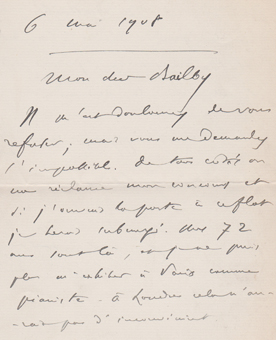 6 mai 1908
Mon cher Bailby
Il m'est douloureux de vous
refuser ; mais vous me demandez
l'impossible. De tous côtés on
me réclame mon concours et
si j'ouvrais la porte à ce flot
je serais submergé. Mes 72
ans sont là, et je ne puis
plus m'exhiber à Paris comme
pianiste. à Londres cela n'au-
rait pas d'inconvénient